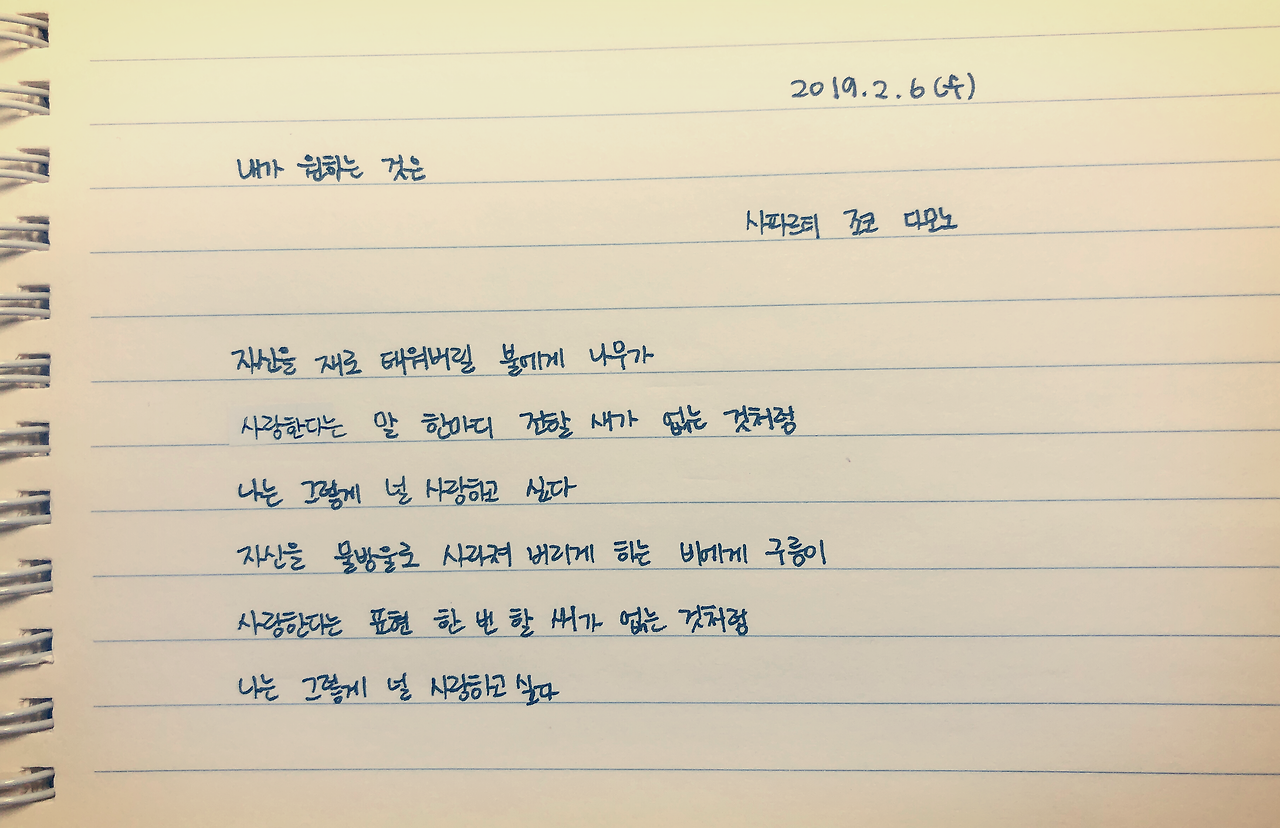 2019.2.6(수)
내가 원하는 것은
사파르디 조코 다모노
자신을 재로 태워버릴 불에게 나무가
사랑한다는 말 한마디 전할 새가 없는 것처럼
나는 그렇게 널 사랑하고 싶다
자신을 물방울로 사라져 버리게 하는 비에게 구름이
사랑한다는 표현 한 번 할 새가 없는 것처럼
나는 그렇게 널 사랑하고 싶다